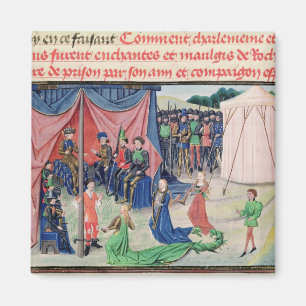 y en ce faisant Comment charlemeine et
us furent enchantes et maulgis de Roch
re de prison par son amy et compaignon